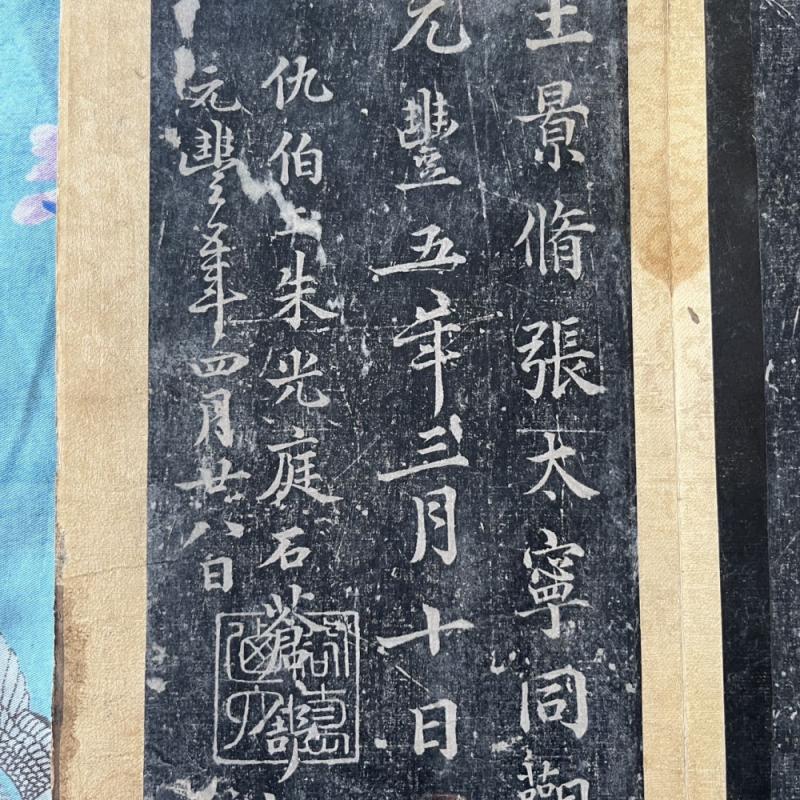 王景脩張太寧同觀
元豐五年三月十日
仇伯玉朱光庭石蒼舒
元豐年四月廿八日